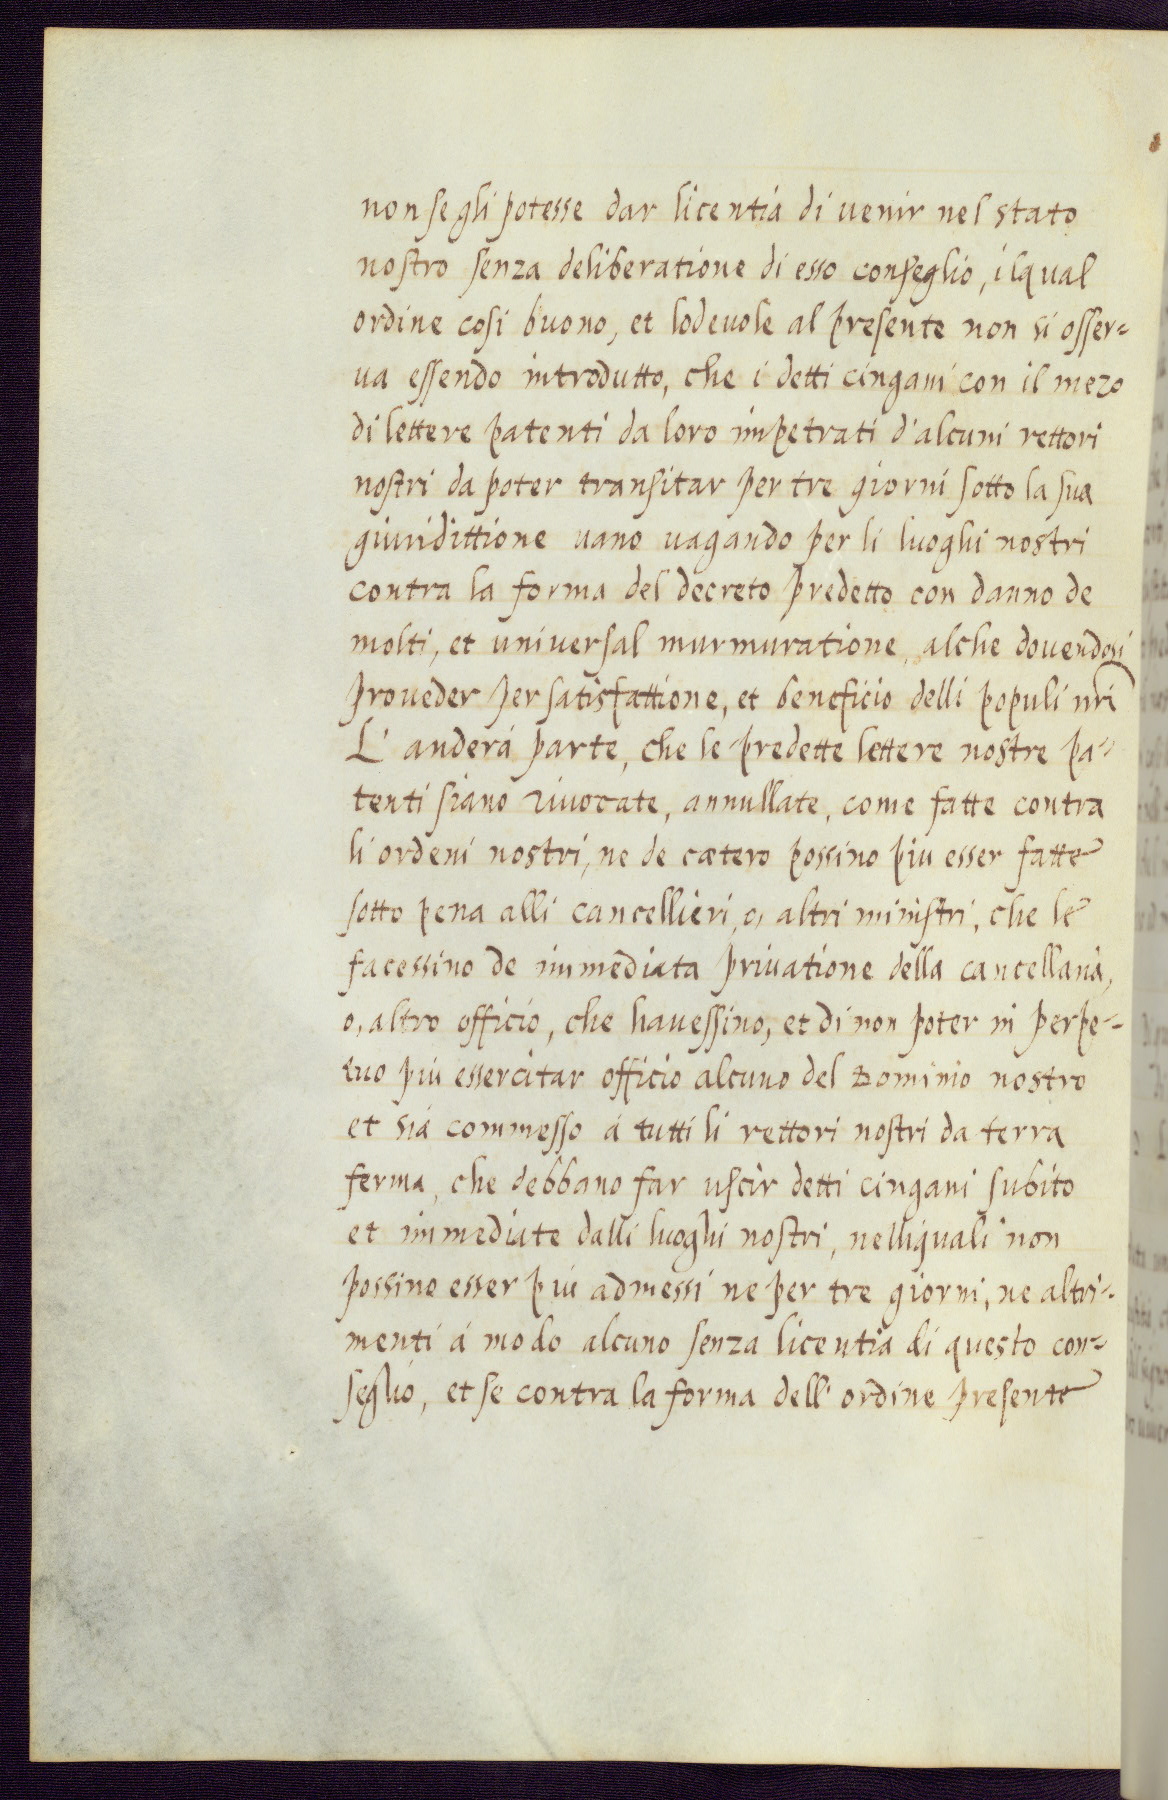 non se gli potesse dar licentia di venir nel stato
nostro senza deliberatione di esso conseglio, ilqual
ordine cosi buono, et lodevole al presente non si osser-
va essendo introdutto, che i detti cingani con il mezo
di lettere patenti da loro impetrati d'alcuni rettori
nostri da poter transitar per tre giorni sotto la sua
giuriditione vano vagando per li luoghi nostri
contra la forma del decreto predetto con danno de
molti, et universal murmuratione, alche dovendosi
proveder per satisfattione, et beneficio delli populi nri
L' anderá parte, che le predette lettere nostre pa-
tenti siano rivocate, annullate, come fatte contra
li ordeni nostri, ne de cætero possino piu esser fatte
sotto pena alli cancellieri, o, altri ministri, che le
facessino de immediata privatione della cancellaria,
o, altro officio, che havessino, et di non poter in perpe-
tuo piu essercitar officio alcuno del Dominio nostro
et siá commesso á tutti li rettori nostri da terra
ferma, che debbano far uscir detti cingani subito
et immediate dalli luoghi nostri, nelliquali non
possino esser piu admessi ne per tre giorni, ne altri-
menti á modo alcuno senza licentia di questo con-
seglio, et se contra la forma dell' ordine presente